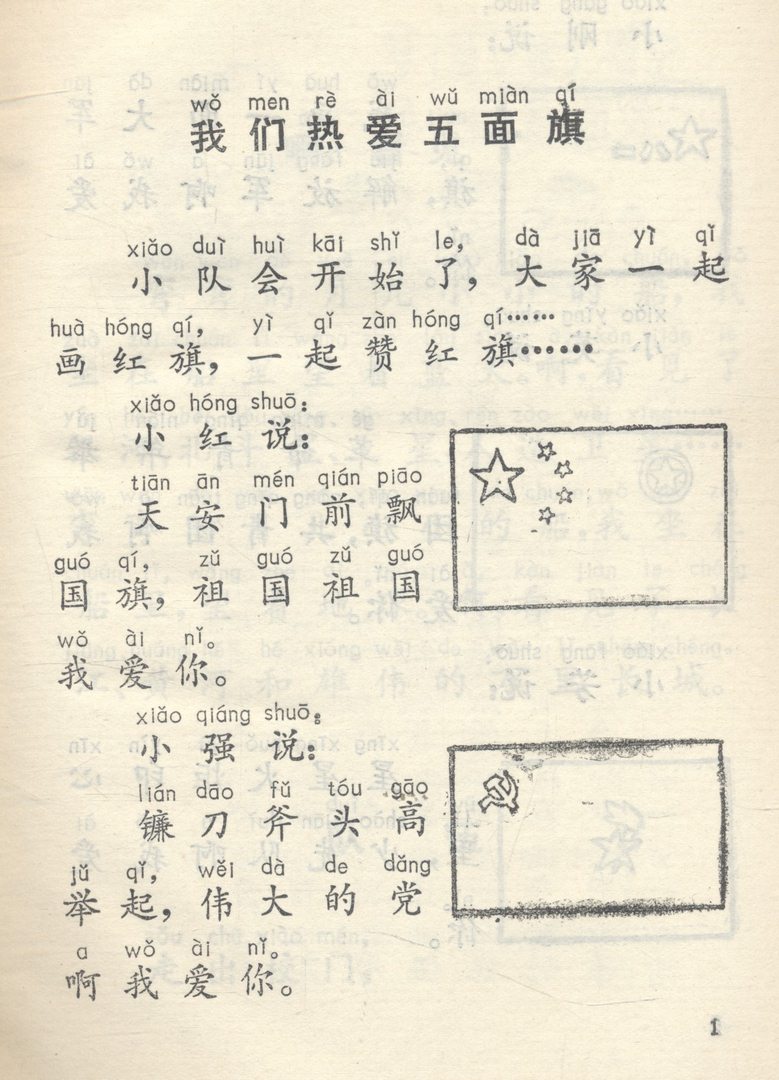 wǒ men rè ài wǔ miàn qí
我们热爱五面旗
xiǎo duì huì kāi shǐ le, dà jiā yì qǐ
小队会开始了，大家一起
huà hóng qí, yì qǐ zàn hóng qí……
画红旗，一起赞红旗……
xiǎo hóng shuō:
小红说：
tiān ān mén qián piāo
天安门前飘
guó qí, zǔ guó zǔ guó
国旗，祖国祖国
wǒ ài nǐ。
我爱你。
xiǎo qiáng shuō:
小强说：
lián dāo fǔ tóu gāo
镰刀斧头高
jǔ qǐ, wěi dà de dǎng
举起，伟大的党
a wǒ ài nǐ。
啊我爱你。
1